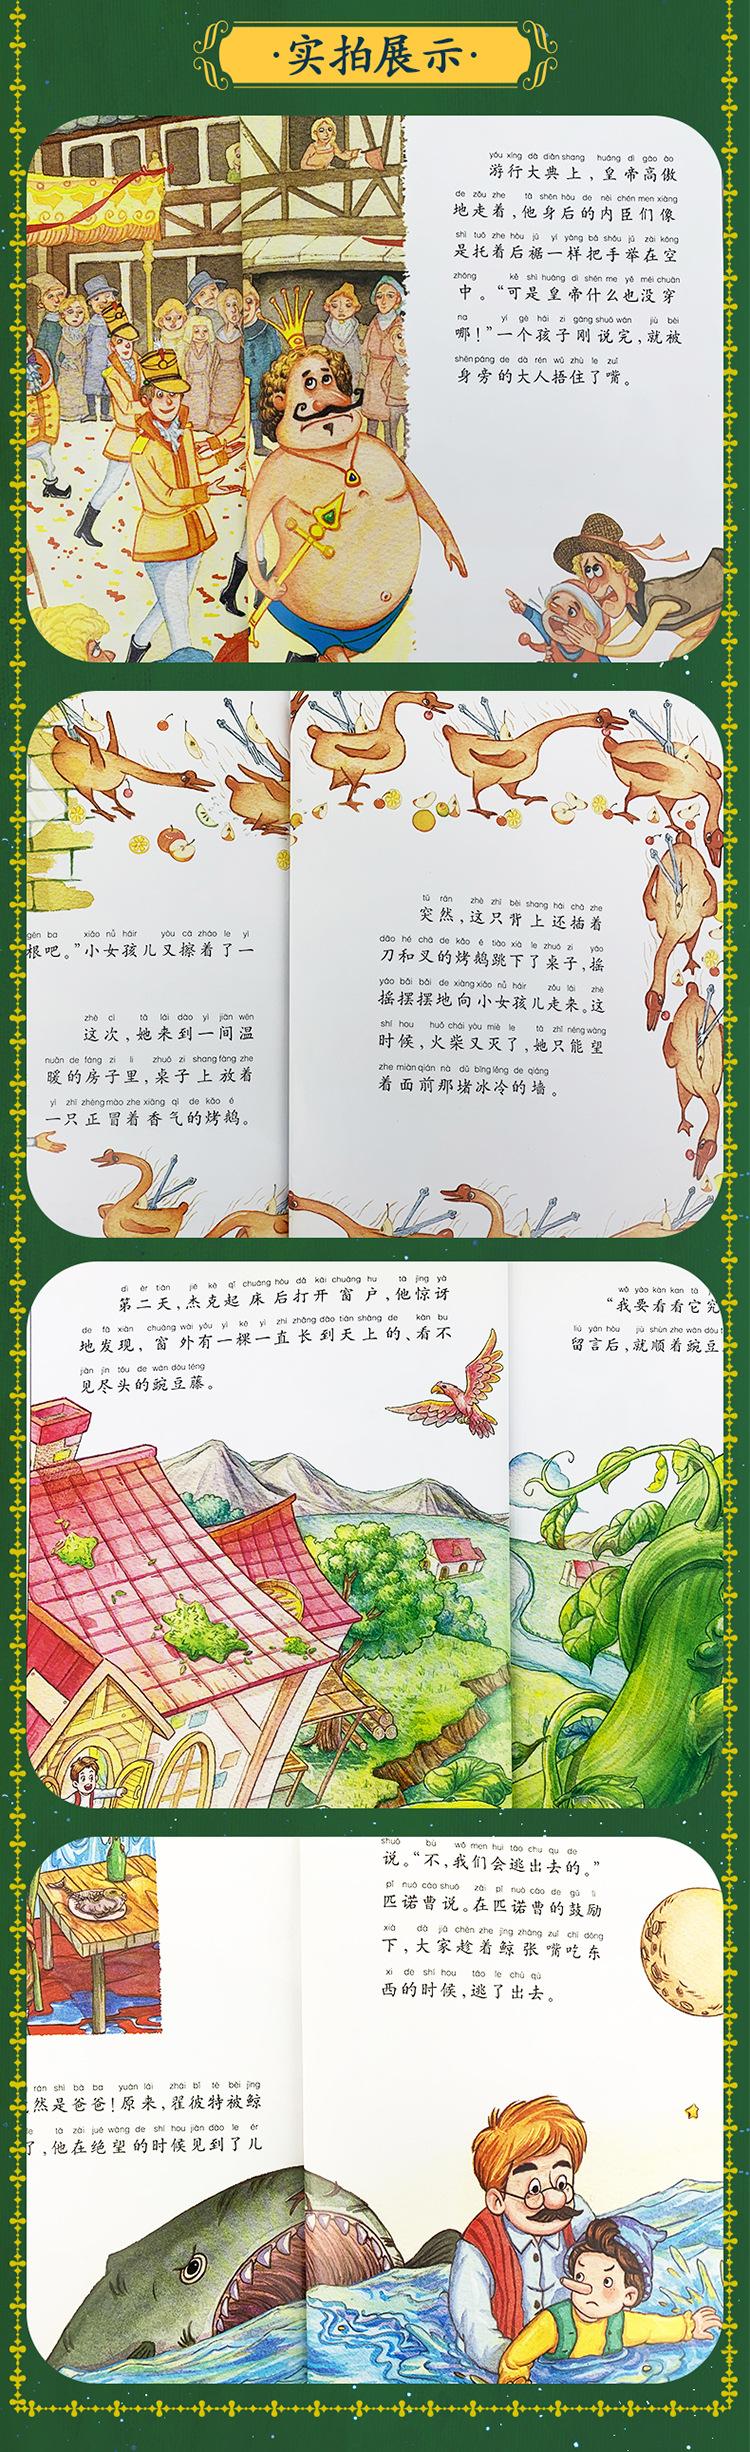 ·实拍展示·
yóu xíng dà diǎn shang huáng dì gāo ào
游行大典上，皇帝高傲
de zǒu zhe tā shēn hòu de nèi chén men xiàng
地走着，他身后的内臣们像
shì tuō zhe hòu jū yí yàng bǎ shǒu jǔ zài kōng
是托着后裾一样把手举在空
zhōng kě shì huáng dì shén me yě méi chuān
中。“可是皇帝什么也没穿
na yí gè hái zi gāng shuō wán jiù bèi
哪！”一个孩子刚说完，就被
shēn páng de dà rén wǔ zhù le zuǐ
身旁的大人捂住了嘴。
gēn ba xiǎo nǚ háir yòu cā zháo le yì
根吧。”小女孩儿又擦着了一
zhè cì tā lái dào yì jiān wēn
这次，她来到一间温
nuǎn de fáng zi li zhuō zi shang fàng zhe
暖的房子里，桌子上放着
yì zhī zhèng mào zhe xiāng qì de kǎo é
一只正冒着香气的烤鹅。
tū rán zhè zhī bèi shang hái chā zhe
突然，这只背上还插着
dāo hé chā de kǎo é tiào xià le zhuō zi yáo
刀和叉的烤鹅跳下了桌子，摇
yáo bǎi bǎi de xiàng xiǎo nǚ háir zǒu lái zhè
摇摆摆地向小女孩儿走来。这
shí hou huǒ chái yòu miè le tā zhǐ néng wàng
时候，火柴又灭了，她只能望
zhe miàn qián nà dǔ bīng lěng de qiáng
着面前那堵冰冷的墙。
dì èr tiān jié kè qǐ chuáng hòu dǎ kāi chuāng hu tā jīng yà
第二天，杰克起床后打开窗户，他惊讶
de fā xiàn chuāng wài yǒu yì kē yì zhí zhǎng dào tiān shàng de kàn bu
地发现，窗外有一棵一直长到天上的、看不
jiàn jìn tóu de wān dòu téng
见尽头的豌豆藤。
wǒ yào kàn kan tā
“我要看看它究
liú yán hòu jiù shùn zhe wān dòu
留言后，就顺着豌豆
shuō bù wǒ men huì táo chu qu de
说。“不，我们会逃出去的。”
pǐ nuò cáo shuō zài pǐ nuò cáo de gǔ lì
匹诺曹说。在匹诺曹的鼓励
xià dà jiā chèn zhe jīng zhāng zuǐ chī dōng
下，大家趁着鲸张嘴吃东
xi de shí hou táo le chū qù
西的时候，逃了出去。
rán shì bà ba yuán lái zhái bǐ tè bèi jīng
然是爸爸！原来，翟彼特被鲸
le tā zài jué wàng de shí hou jiàn dào le ér
了，他在绝望的时候见到了儿